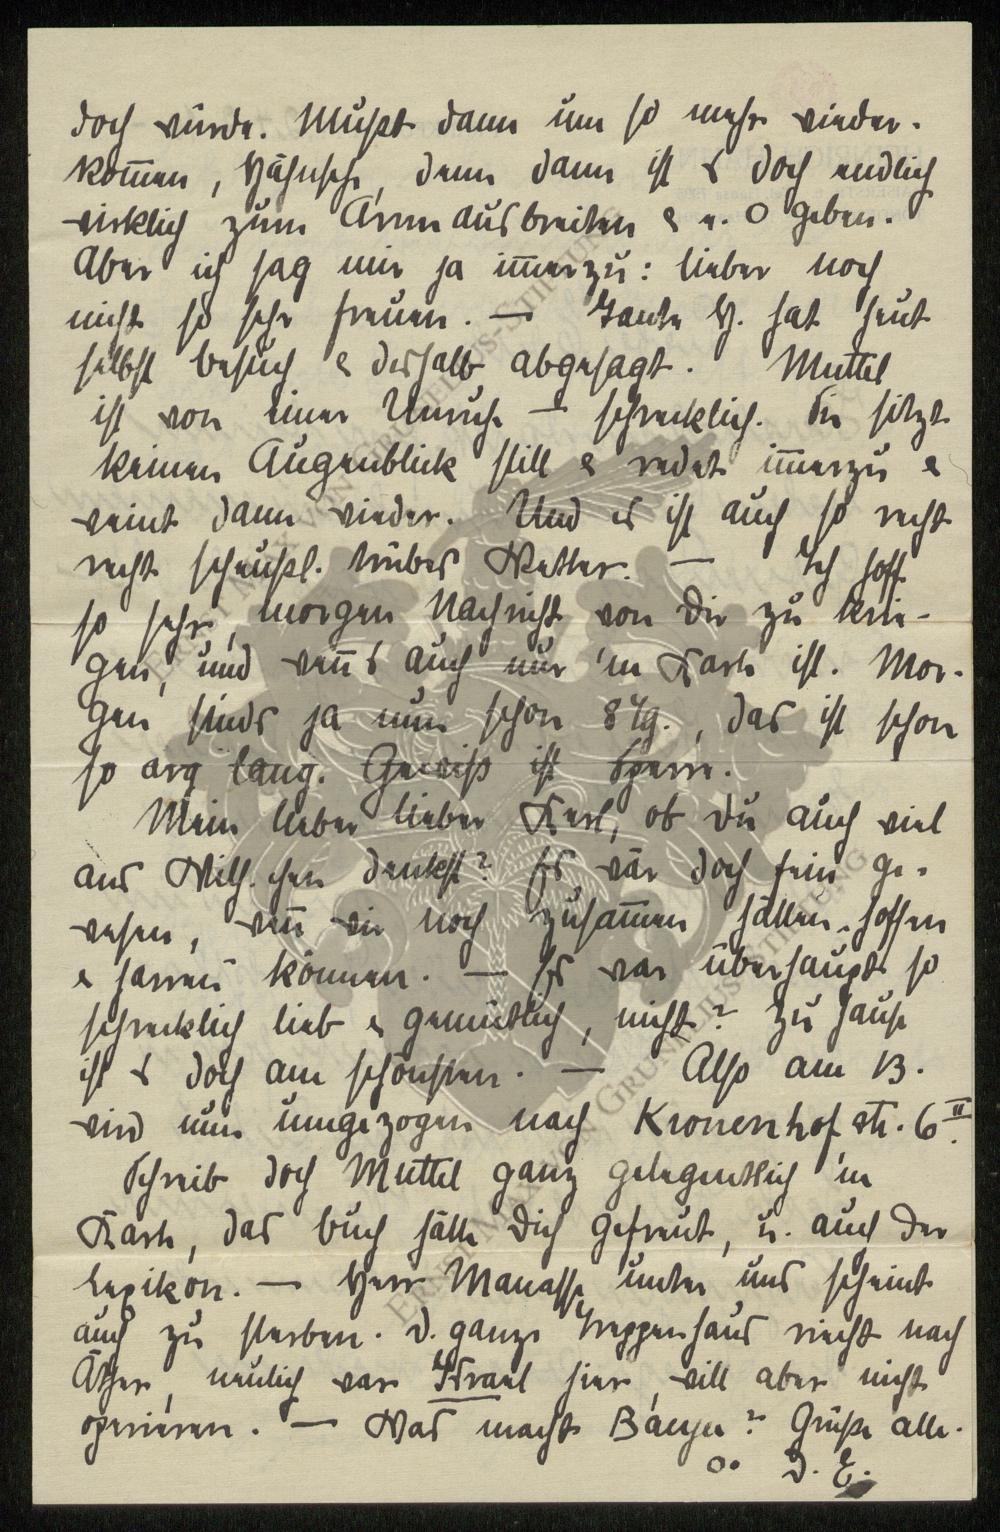 doch würde. Mußt dann um so mehr wieder-
kom̄en, Hähnsche, denn dann ist s doch endlich
wirklich zum Arme ausbreiten & e. O geben.
Aber ich sag mir ja im̄erzu: lieber noch
nicht so sehr freuen. — Tante H. hat heut
selbst besuch & deshalb abgesagt. Muttel
ist von einer Unruhe — schrecklich. Sie sitzt
keinen Augenblick still & redet im̄erzu &
weint dann wieder. Und es ist auch so recht
recht scheußl. trübes Wetter. — Ich hoff
so sehr, morgen Nachricht von Dir zu krie-
gen, und wen̄ s auch nur 'ne Karte ist. Mor-
gen sinds ja nun schon 8 Tg., das ist schon
so arg lang. Gewiß ist Sperre.
Mein lieber lieber Karl, ob Du auch viel
ans Wilh. chen denkst? Es wär doch fein ge-
wesen, wen̄ wir noch zusam̄en hätten hoffen
& harren können. — Es war überhaupt so
schrecklich lieb & gemütlich, nicht? Zu Hause
ist s doch am schönsten. — Also am 13.
wird nun umgezogen nach Kronenhofstr. 6 II.
Schreib doch Muttel ganz gelegentlich 'ne
Karte, das buch hätte Dich gefreut, u. auch der
lexikon. — Herr Manasse unter uns scheint
auch zu sterben. D. ganze Treppenhaus riecht nach
Äther, neulich war Israel hier, will aber nicht
operieren. — Was macht ? Grüße alle.
D. E.